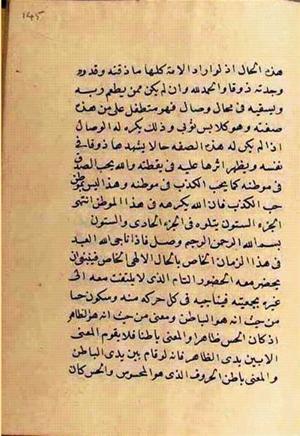 ١٤٥
هذه الحال اذ لو اراد الامة كلها ما ذقته وقد ورد
وجدته ذوقا والحمد لله وان لم يكن ممن يطعم ربه
ويسقيه في محال وصال فهو متطفل على من هذه
صفته وهو كلابس ثوبي وذلك يكره له الوصال
اذا لم يكن له هذه الصفة حالا يشهدها ذوقا في
نفسه ويظهر اثرها عليه في يقظته والله يحب الصدق
في موطنه كما يحب الكذب في موطنه وهذا ليس موطن
حب الكذب فان الله يكرهه في هذا الموطن انتهى
الجزء الستون يتلوه في الجزء الحادي والستون
بسم الله الرحمن الرحيم وصل فاذا ناجى الله العبد
في هذا الزمان الخاص بالحال الالهي الخاص فينبغي ان
يحضر معه الحضور التام الذي لا يلتفت معه الى
غيره بجمعيته فيناجيه في كل حركة منه وسكون حسا
من حيث انه هو الباطن ومعنى من حيث انه هو الظاهر
اذ كان الحس ظاهرا والمعنى باطنا فلا يقوم المعنى
الا بين يدي الظاهر فانه لو قام بين يدي الباطن
والمعنى باطن الحروف الذي هو المحسوس والحس كان